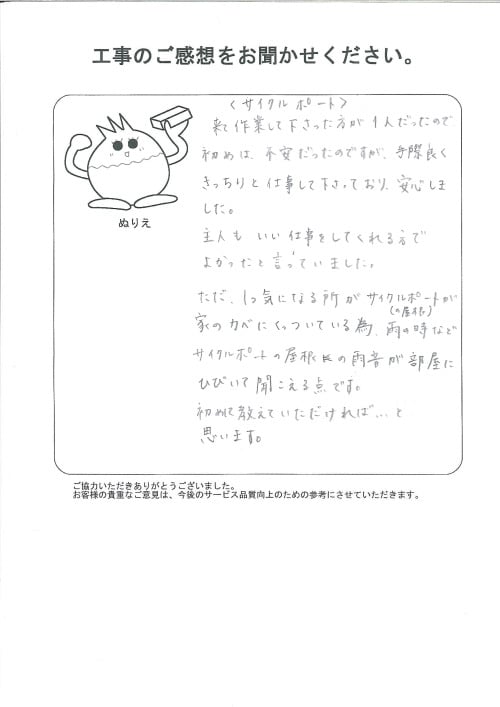 工事のご感想をお聞かせください。
〈サイクルポート〉
来て作業して下さった方が1人だったので
初めは、不安だったのですが、手際良く
きっちりと仕事して下さっており、安心しま
した。
主人もいい仕事をしてくれる方で
よかったと言っていました。
ただ、1つ気になる所がサイクルポートが
(の屋根)
家のカベにくっついている為、雨の時など
サイクルポートの屋根の雨音が部屋に
ひびいて聞こえる点です。
初めに教えていただければ…と
思います。
ぬりえ
ご協力いただきありがとうございました。
お客様の貴重なご意見は、今後のサービス品質向上のための参考にさせていただきます。